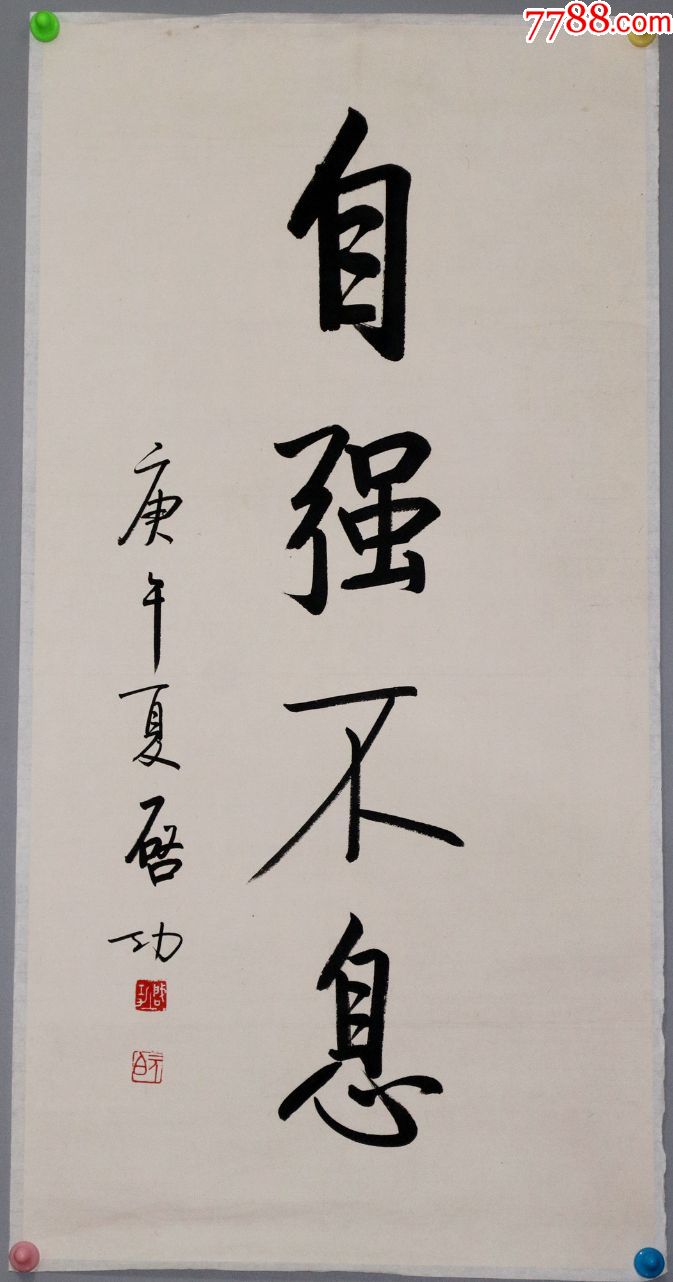 7788.com
自强不息
庚午夏启功
启功
元白